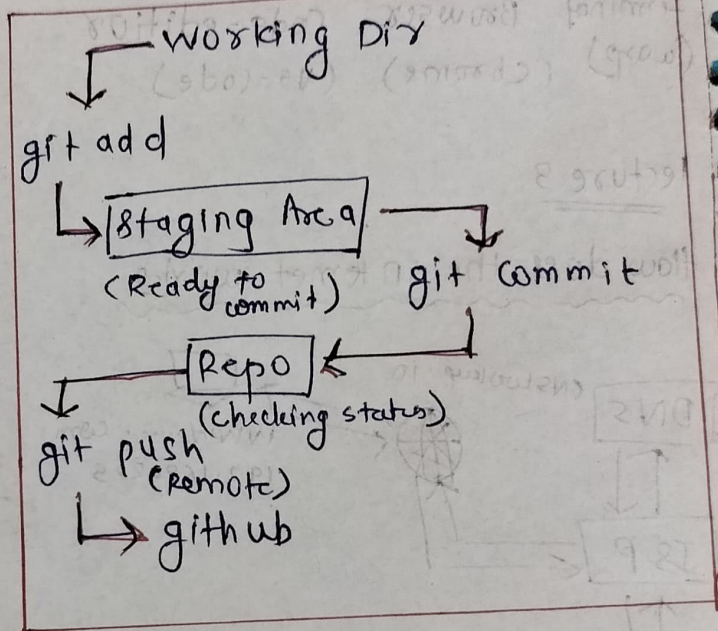 Working Dir
git add
Staging Area
(Ready to commit)
git commit
Repo
(checking status)
git push
(Remote)
github